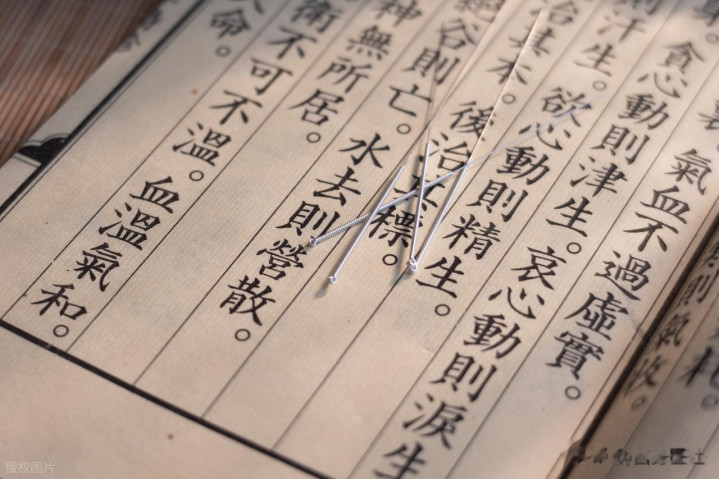 氣血不過虛實。
貪心動則津生。哀心動則淚生
則汗生。欲心動則精生。
治其本。後治其標。
絕谷則亡。水去則營散。
神無所居。
衛不可不溫。血溫氣和。
命。
版权图片